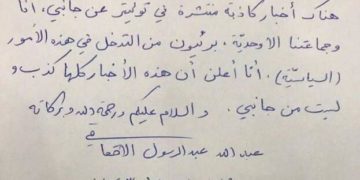 هناك أخبار كاذبة منتشرة في تويتر عن جانبي، أنا
وجماعتنا الأوحديّة، بريئون من التدخل في هذه الأمور
(السياسيّة). أنا أعلن أن هذه الأخبار كلها كذب و
ليست من جانبي. والسلام عليكم ورحمة الله وبركاته
في
عبد الله عبد الرسول الاحقاقي